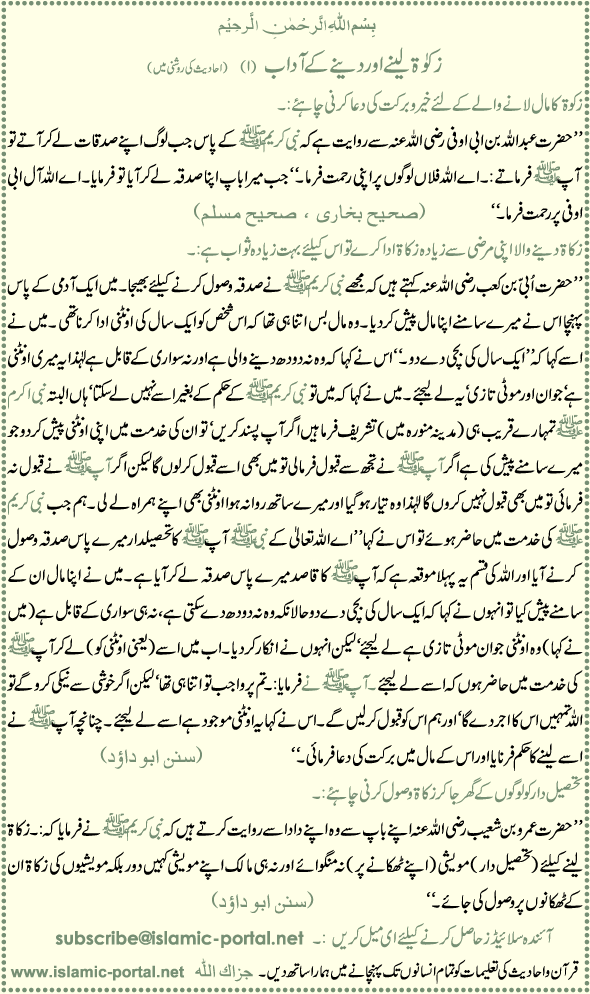 بِسْمِ اللهِ الرَّحْمٰنِ الرَّحِيْمِ
زکوٰۃ لینے اور دینے کے آداب (۱) (احادیث کی روشنی میں)
زکوۃ کا مال لانے والے کے لئے خیر و برکت کی دعا کرنی چاہئے:۔
’’حضرت عبداللہ بن ابی اوفی رضی اللہ عنہ سے روایت ہے کہ نبی کریم ﷺ کے پاس جب لوگ اپنے صدقات لے کر آتے تو
آپ ﷺ فرماتے:۔ اے اللہ فلاں لوگوں پر اپنی رحمت فرما۔‘‘ جب میرا باپ اپنا صدقہ لے کر آیا تو فرمایا۔ اے اللہ آل ابی
اوفی پر رحمت فرما۔‘‘ (صحیح بخاری ، صحیح مسلم)
زکاۃ دینے والا اپنی مرضی سے زیادہ زکاۃ ادا کرے تو اس کیلئے بہت زیادہ ثواب ہے:۔
’’حضرت اُبیّ بن کعب رضی اللہ عنہ کہتے ہیں کہ مجھے نبی کریم ﷺ نے صدقہ وصول کرنے کیلئے بھیجا۔ میں ایک آدمی کے پاس
پہنچا اس نے میرے سامنے اپنا مال پیش کر دیا۔ وہ مال بس اتنا ہی تھا کہ اس شخص کو ایک سال کی اونٹنی ادا کرنا تھی۔ میں نے
اسے کہا کہ ’’ایک سال کی بچی دے دو۔‘‘ اس نے کہا کہ وہ نہ دودھ دینے والی ہے اور نہ سواری کے قابل ہے لہٰذا یہ میری اونٹنی
ہے‘ جوان اور موٹی تازی‘ یہ لے لیجئے۔ میں نے کہا کہ میں تو نبی کریم ﷺ کے حکم کے بغیر اسے نہیں لے سکتا‘ ہاں البتہ نبی اکرم
ﷺ تمہارے قریب ہی (مدینہ منورہ میں) تشریف فرما ہیں اگر آپ پسند کریں‘ تو ان کی خدمت میں اپنی اونٹنی پیش کر دو جو
میرے سامنے پیش کی ہے اگر آپ ﷺ نے تجھ سے قبول فرمالی تو میں بھی اسے قبول کر لوں گا لیکن اگر آپ ﷺ نے قبول نہ
فرمائی تو میں بھی قبول نہیں کروں گا لہٰذا وہ تیار ہو گیا اور میرے ساتھ روانہ ہوا اونٹنی بھی اپنے ہمراہ لے لی۔ ہم جب نبی کریم
ﷺ کی خدمت میں حاضر ہوئے تو اس نے کہا ’’اے اللہ تعالیٰ کے نبی ﷺ آپ ﷺ کا تحصیلدار میرے پاس صدقہ وصول
کرنے آیا اور اللہ کی قسم یہ پہلا موقعہ ہے کہ آپ ﷺ کا قاصد میرے پاس صدقہ لے کر آیا ہے۔ میں نے اپنا مال ان کے
سامنے پیش کیا تو انہوں نے کہا کہ ایک سال کی بچی دے دو حالانکہ وہ نہ دودھ دے سکتی ہے، نہ ہی سواری کے قابل ہے (میں
نے کہا) وہ اونٹنی جوان موٹی تازی ہے لے لیجئے‘ لیکن انہوں نے انکار کر دیا۔ اب میں اسے (یعنی اونٹنی کو) لے کر آپ ﷺ
کی خدمت میں حاضر ہوں کہ اسے لے لیجئے۔ آپ ﷺ نے فرمایا:۔ تم پر واجب تو اتنا ہی تھا‘ لیکن اگر خوشی سے نیکی کرو گے تو
اللہ تمہیں اس کا اجر دے گا‘ اور ہم اس کو قبول کر لیں گے۔ اس نے کہا یہ اونٹنی موجود ہے اسے لے لیجئے۔ چنانچہ آپ ﷺ نے
اسے لینے کا حکم فرمایا اور اس کے مال میں برکت کی دعا فرمائی۔‘‘ (سنن ابو داؤد)
تحصیل دار کو لوگوں کے گھر جا کر زکاۃ وصول کرنی چاہئے:۔
’’حضرت عمرو بن شعیب رضی اللہ عنہ اپنے باپ سے وہ اپنے دادا سے روایت کرتے ہیں کہ نبی کریم ﷺ نے فرمایا کہ:۔ زکاۃ
لینے کیلئے (تحصیل دار) مویشی (اپنے ٹھکانے پر) نہ منگوائے اور نہ ہی مالک اپنے مویشی کہیں دور بلکہ مویشیوں کی زکاۃ ان
کے ٹھکانوں پر وصول کی جائے۔‘‘ (سنن ابو داؤد)
آئندہ سلائیڈز حاصل کرنے کیلئے ای میل کریں :۔ subscribe@islamic-portal.net
قرآن و احادیث کی تعلیمات کو تمام انسانوں تک پہنچانے میں ہمارا ساتھ دیں۔ جزاك الله www.islamic-portal.net